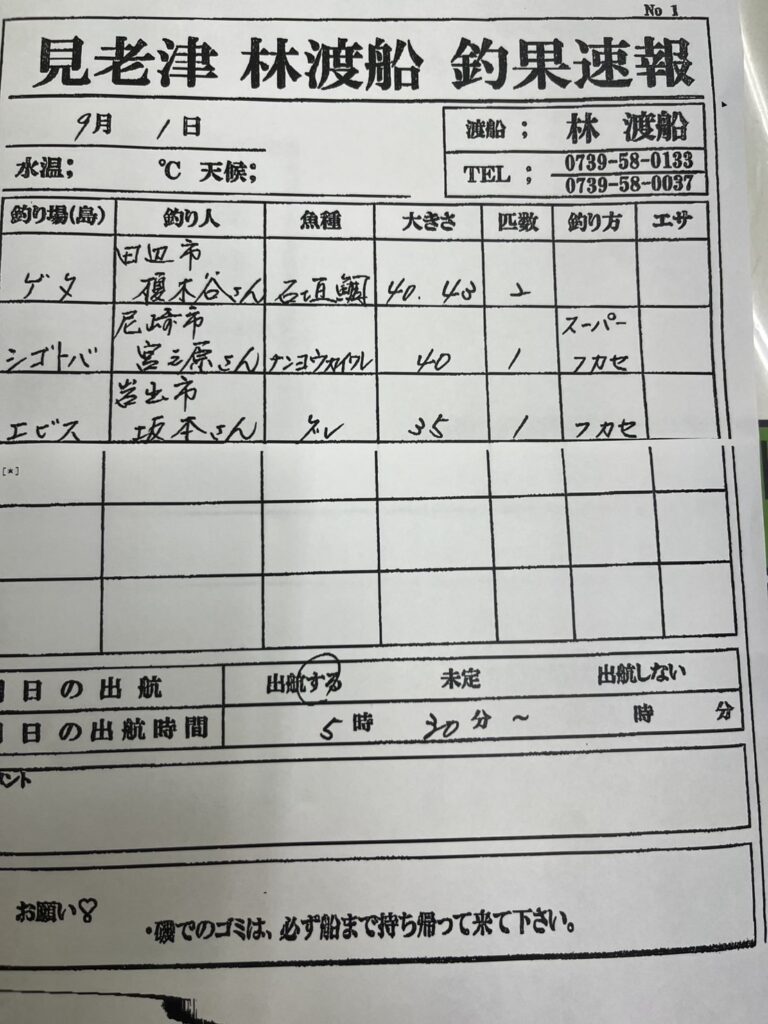 No 1
見老津 林渡船 釣果速報
9月 1日
渡船 ; 林 渡船
水温; ℃ 天候;
TEL ; 0739-58-0133
0739-58-0037
釣り場(島) 釣り人 魚種 大きさ 匹数 釣り方 エサ
田辺市
ゲタ 榎木谷さん 石垣鯛 40.43 2
尼崎市 スーパー
シゴトバ 宮之原さん ナンヨウカイワレ 40 1 フカセ
岩出市
エビス 坂本さん グレ 35 1 フカセ
[*]
日の出航 出航する 未定 出航しない
日の出航時間 5時 30分 ~ 時 分
ント
お願い♡
・磯でのゴミは、必ず船まで持ち帰って来て下さい。